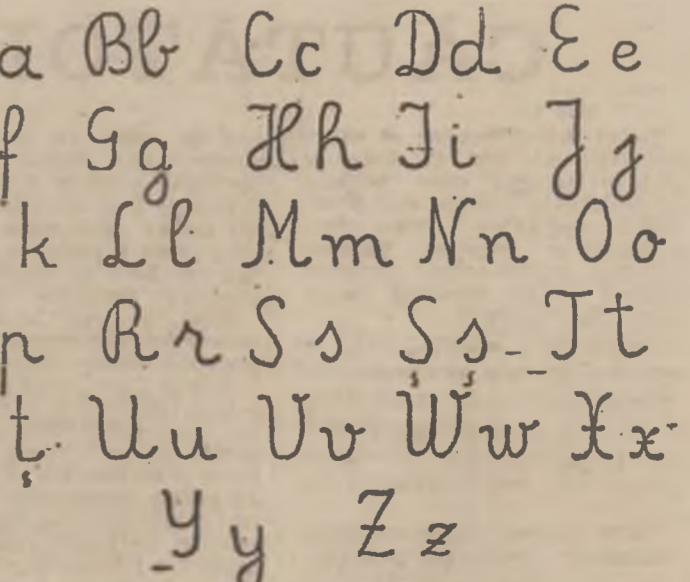 a Bb Cc Dd Ee
f Gg Hh Ii Jj
k Ll Mm Nn Oo
p Rr Ss Șș Tt
ț Uu Vv Ww Xx
Yy Zz